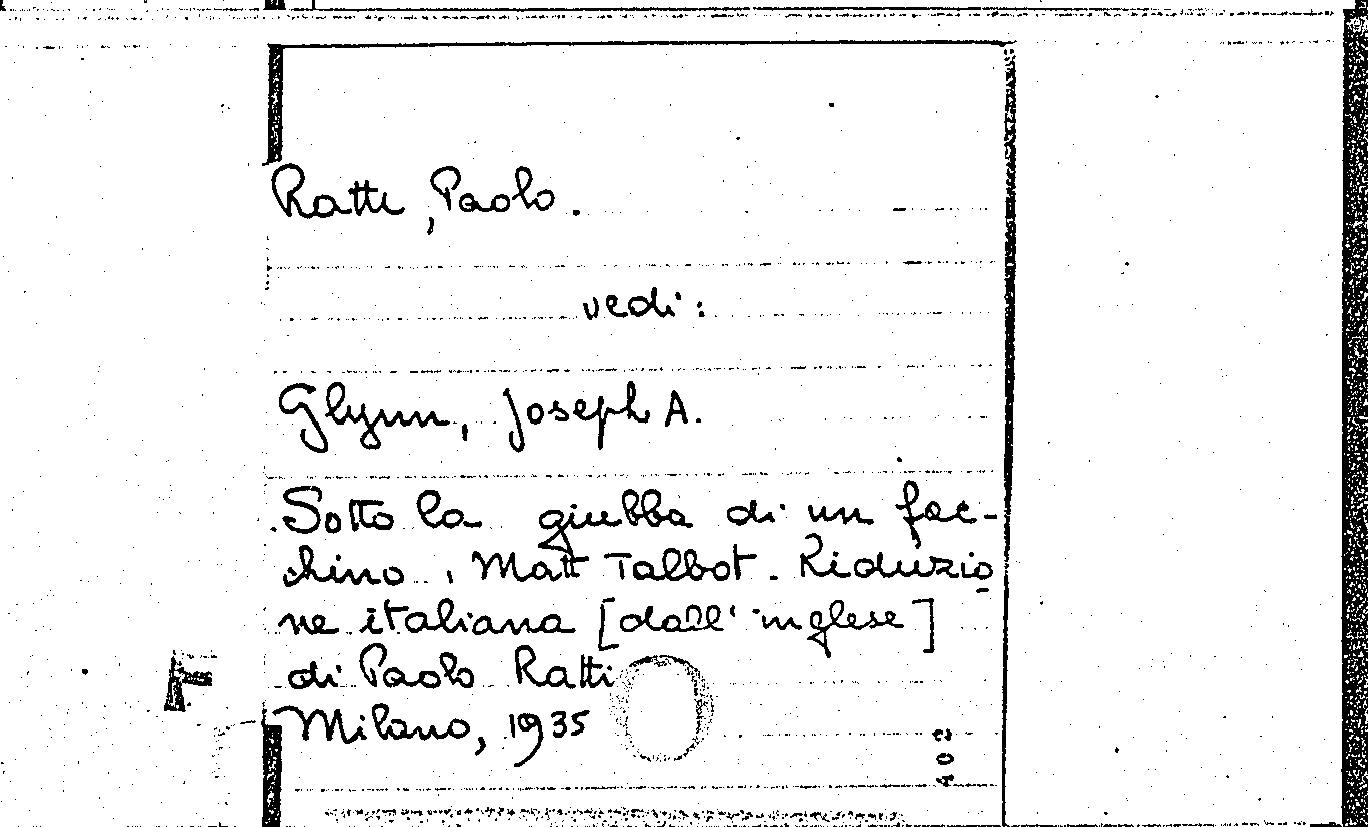 Ratti, Paolo.
vedi:
Glynn, Joseph A.
Sotto la giubba di un fac-
chino, Matt Talbot. Riduzio
ne italiana [dall'inglese]
di Paolo Ratti
Milano, 1935
402